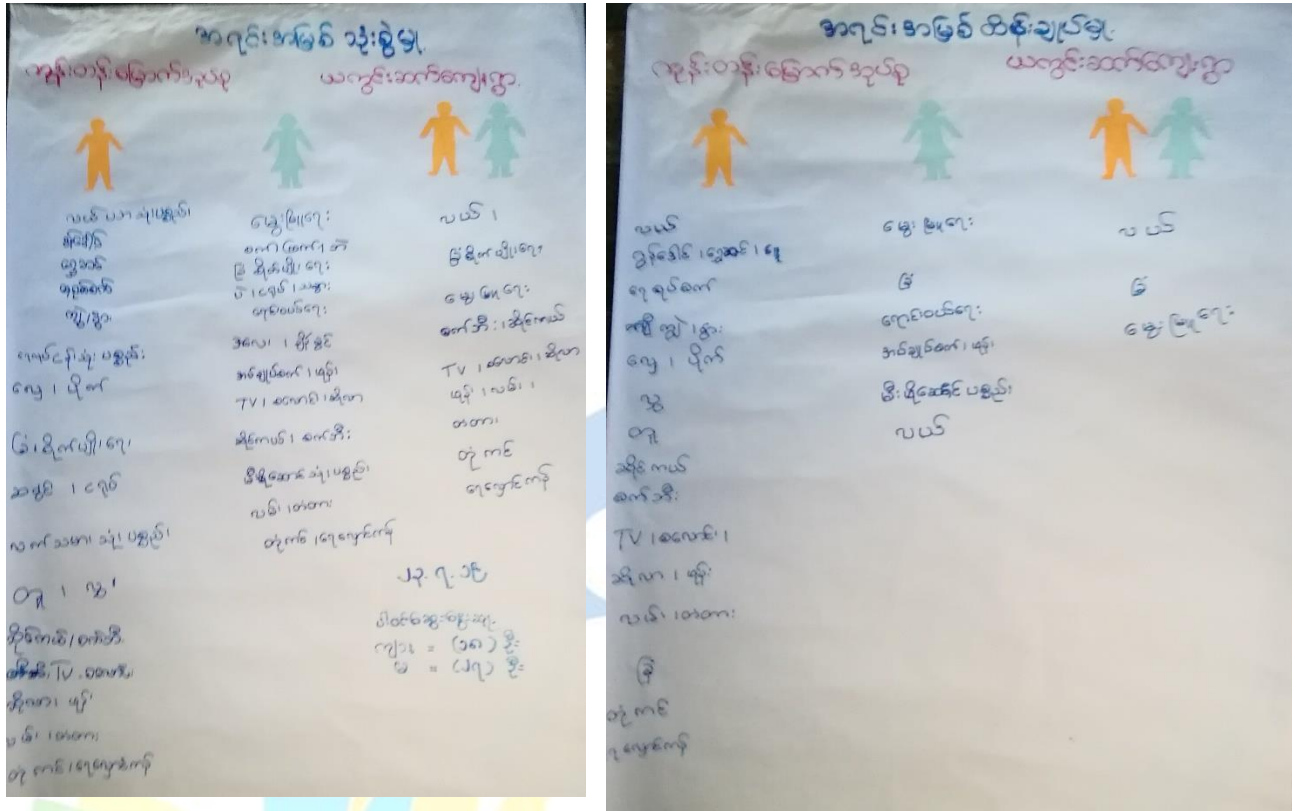 အရင်းအမြစ် သုံးစွဲမှု
ကျွန်းတန်းမြောက်အုပ်စု ယကွင်းဆက်ကျေးရွာ
လယ်ယာသုံးပစ္စည်း
ကျွဲ၊ နွား
ရေလုပ်ငန်းသုံးပစ္စည်း
လှေ၊ ပိုက်
ခြံစိုက်ပျိုးရေး
လက်သမားသုံးပစ္စည်း
တူ၊ လွှ
ဆိုင်ကယ်၊ စက်ဘီး
TV၊ စလောင်း
ဆိုလာ၊ ဖုန်း
လမ်း၊ တံတား
တုံကင်၊ ရေလှောင်ကန်
မွေးမြူရေး
ခြံစိုက်ပျိုးရေး
ရောင်းဝယ်ရေး
အပ်ချုပ်စက်၊ ဖုန်း
TV၊ စလောင်း၊ ဆိုလာ
ဆိုင်ကယ်၊ စက်ဘီး
မီးဖိုဆောင်သုံးပစ္စည်း
လမ်း၊ တံတား
တုံကင်၊ ရေလှောင်ကန်
လယ်၊
ခြံစိုက်ပျိုးရေး
မွေးမြူရေး
စက်ဘီး၊ ဆိုင်ကယ်
TV၊ စလောင်း၊ ဆိုလာ
ဖုန်း၊ လမ်း၊
တံတား
တုံကင်
ရေလှောင်ကန်
၂၃.၇.၁၉
ပါဝင်ဆွေးနွေးသူ
ကျား = (၁၈) ဦး
မ = (၂၇) ဦး
အရင်းအမြစ် ထိန်းချုပ်မှု
ကျွန်းတန်းမြောက်အုပ်စု ယကွင်းဆက်ကျေးရွာ
လယ်
ရေစုပ်စက်
ကျွဲ၊ နွား
လှေ၊ ပိုက်
လွှ
တူ
ဆိုင်ကယ်
စက်ဘီး
TV၊ စလောင်း၊
ဆိုလာ၊ ဖုန်း
လမ်း၊ တံတား
ခြံ
တုံကင်
ရေလှောင်ကန်
မွေးမြူရေး
ခြံ
ရောင်းဝယ်ရေး
အပ်ချုပ်စက်၊ ဖုန်း
မီးဖိုဆောင်ပစ္စည်း
လယ်
လယ်
ခြံ
မွေးမြူရေး